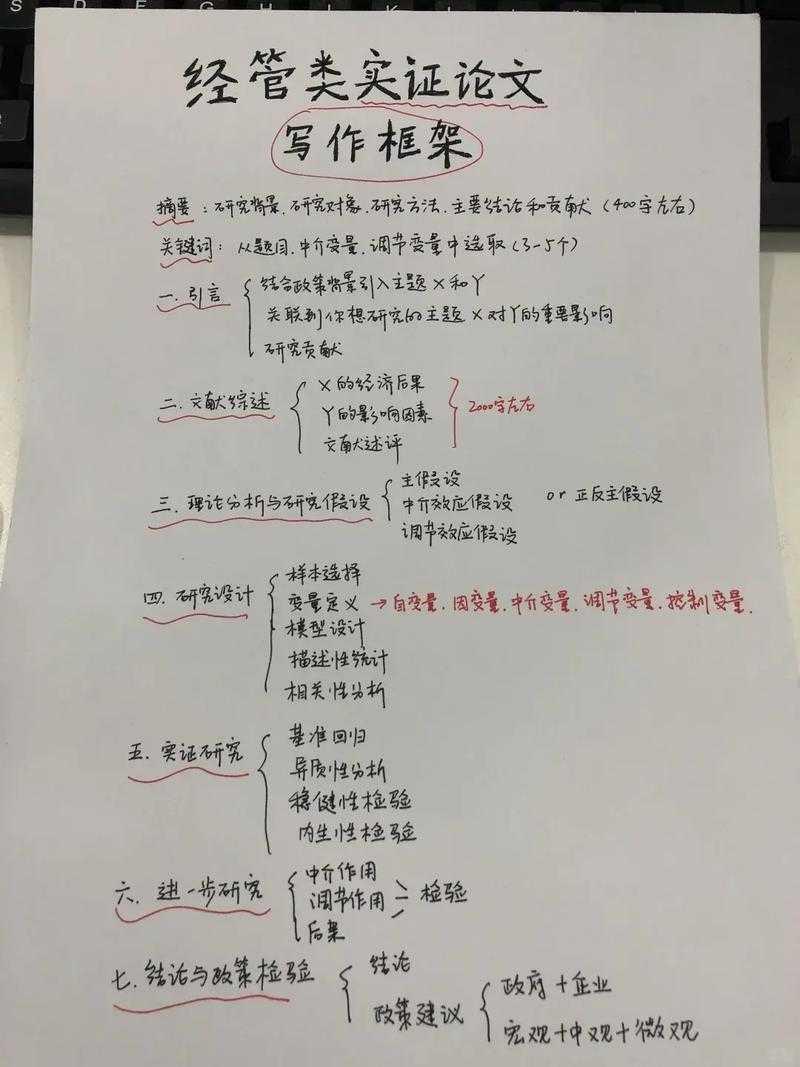 经管类实证论文
写作框架
摘要：研究背景、研究对象、研究方法、主要结论和贡献（400字左右）
关键词：从题目、中介变量、调节变量中选取（3-5个）
一、引言
结合政策背景引入主题X和Y
关联到你想研究的主题X对Y的重要影响
研究贡献
二、文献综述
X的经济后果
Y的影响因素
文献述评
2000字左右
三、理论分析与研究假设
主假设
中介效应假设
调节效应假设
or 正反主假设
四、研究设计
样本选择
变量定义→自变量、因变量、中介变量、调节变量、控制变量、
模型设计
描述性统计
相关性分析
五、实证研究
基准回归
异质性分析
稳健性检验
内生性检验
六、进一步研究
中介作用
调节作用
后果
检验
七、结论与政策检验
结论
政策建议
政府+企业
宏观+中观+微观